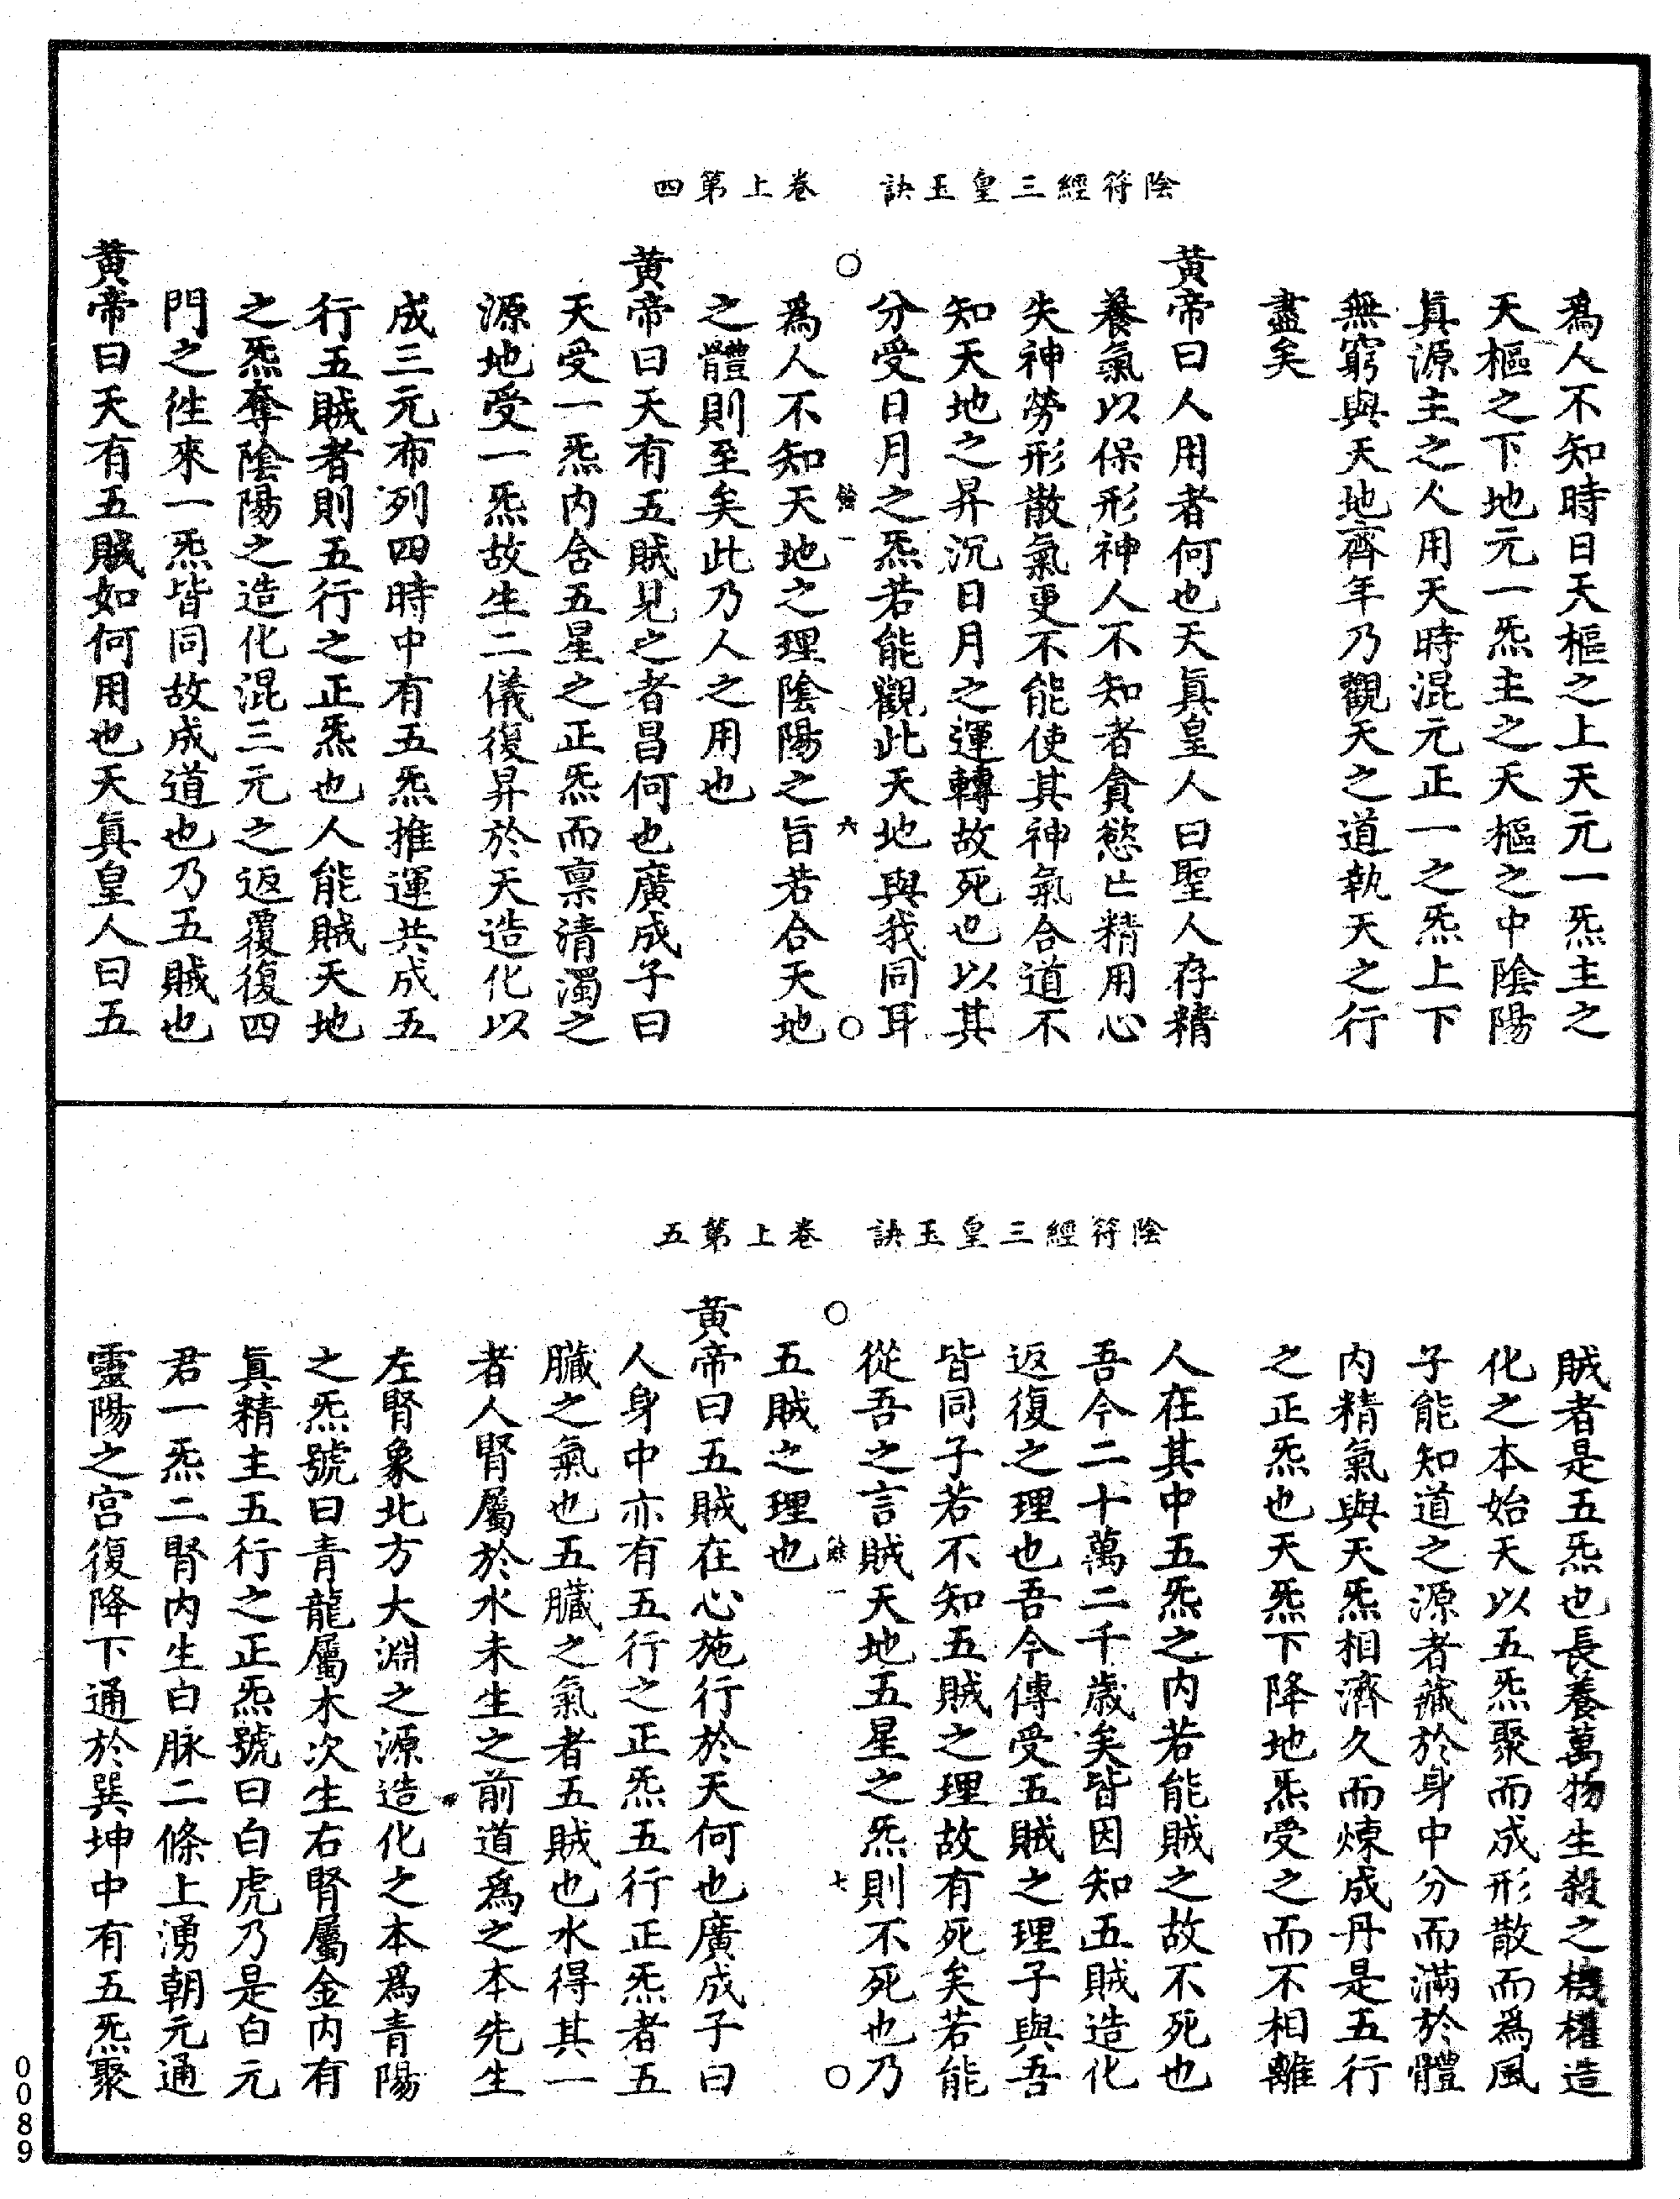 陰符經三皇玉訣　卷上第四
爲人不知時日天樞之上天元一炁主之
天樞之下地元一炁主之天樞之中陰陽
眞源主之人用天時混元正一之炁上下
無窮與天地齊年乃觀天之道執天之行
盡矣
黃帝曰人用者何也天眞皇人曰聖人存精
養氣以保形神人不知者貪慾亡精用心
失神勞形散氣更不能使其神氣合道不
知天地之昇沉日月之運轉故死也以其
分受日月之炁若能觀此天地與我同耳
○　一　六　○
爲人不知天地之理陰陽之旨若合天地
之體則至矣此乃人之用也
黃帝曰天有五賊見之者昌何也廣成子曰
天受一炁內含五星之正炁而禀清濁之
源地受一炁故生二儀復昇於天造化以
成三元布列四時中有五炁推運共成五
行五賊者則五行之正炁也人能賊天地
之炁奪陰陽之造化混三元之返覆復四
門之徃來一炁皆同故成道也乃五賊也
黃帝曰天有五賊如何用也天眞皇人曰五
陰符經三皇玉訣　卷上第五
賊者是五炁也長養萬物生殺之機權造
化之本始天以五炁聚而成形散而爲風
子能知道之源者藏於身中分而滿於體
內精氣與天炁相濟久而煉成丹是五行
之正炁也天炁下降地炁受之而不相離
人在其中五炁之內若能賊之故不死也
吾今二十萬二千歲矣皆因知五賊造化
返復之理也吾今傳受五賊之理子與吾
皆同子若不知五賊之理故有死矣若能
從吾之言賊天地五星之炁則不死也乃
○　一　七　○
五賊之理也
黃帝曰五賊在心施行於天何也廣成子曰
人身中亦有五行之正炁五行正炁者五
臟之氣也五臟之氣者五賊也水得其一
者人腎屬於水未生之前道爲之本先生
左腎象北方大淵之源造化之本爲青陽
之炁號曰青龍屬木次生右腎屬金內有
眞精主五行之正炁號曰白虎乃是白元
君一炁二腎內生白脉二條上湧朝元通
靈陽之宮復降下通於巽坤中有五炁聚
0089